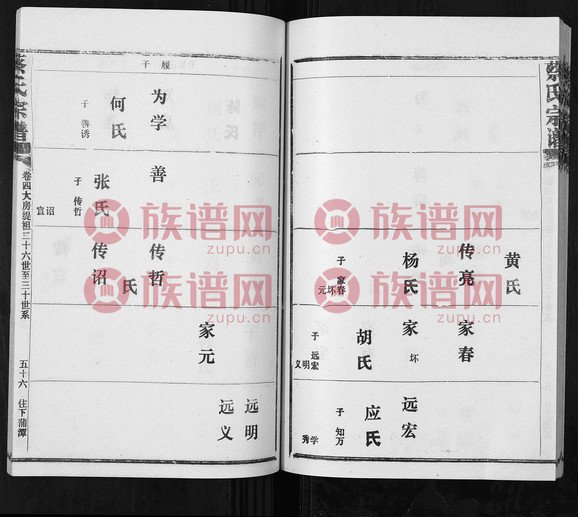 蔡氏宗谱
黄氏
传亮
杨氏
子 家春 坏 元
家春
家坏
胡氏
子 远宏 明 义
远宏
应氏
子 知万 学秀
履子
为学
何氏
子 善诱
善
张氏
子 传哲 诏 宣
传哲
氏
传诏
家元
远明
远义
蔡氏宗谱
卷四大房缇祖二十六世至三十世系
五十六
住下蒲潭
族谱网
zupu.cn
族谱网
zupu.cn
族谱网
zupu.cn
族谱网
zupu.cn